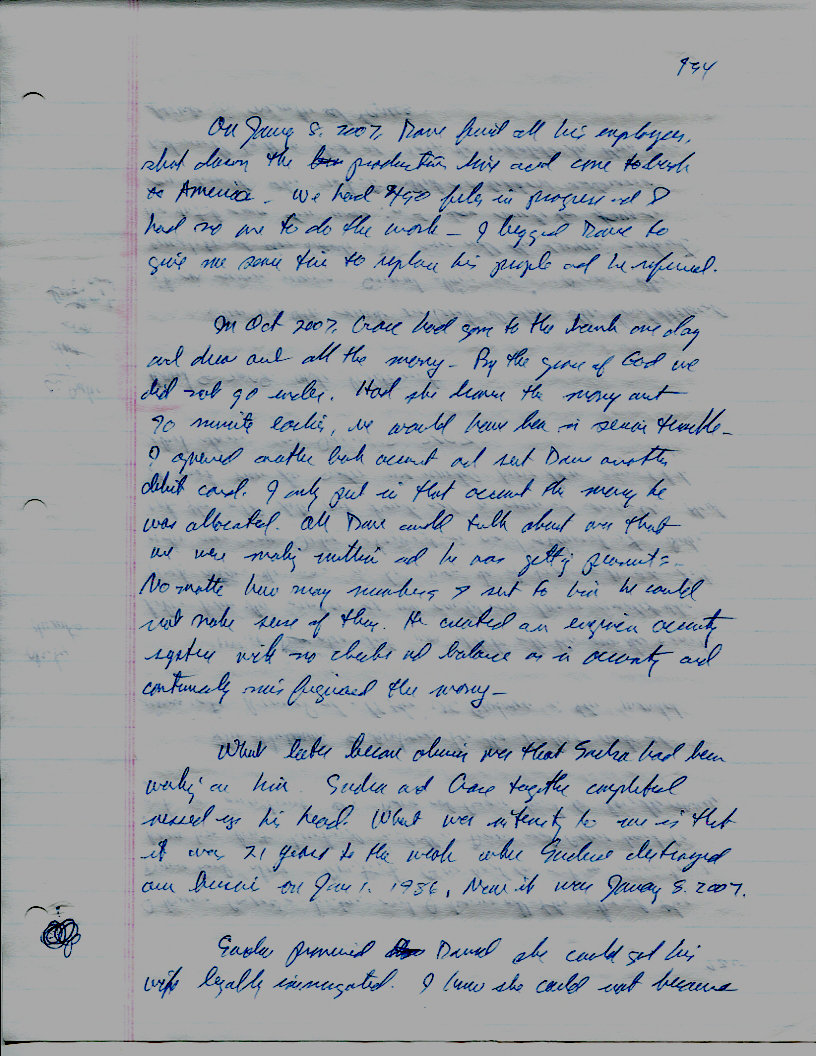 On January 8, 2007, Dave fired all his employees,
shut down the production line and come back
to America. We had 450 files in progress and I
had no one to do the work — I begged Dave to
give me some time to replace his people and he refused.
In Oct 2007, had gone to the bank one day
and drew out all the money — By the grace of God we
did not go under. Had she drawn the money out
90 minutes earlier, we would have been in serious trouble —
I opened another bank account and sent Dave another
debit card. I only put in that account the money he
was allocated. All Dave could talk about was that
we were making million and he was getting peanuts —
No matter how many numbers I sent to him he could
not make sense of them. He created an
system with no checks and balance as in and
continually mis figured the money —
What later became obvious was that had been
working on him. and together completed
messed up his head. What was to me is that
it was 21 years to the week when destroyed
our on Jan 1, 1986, Now it was January 8, 2007.
promised David she could get his
wife legally immigrated. I knew she could not because